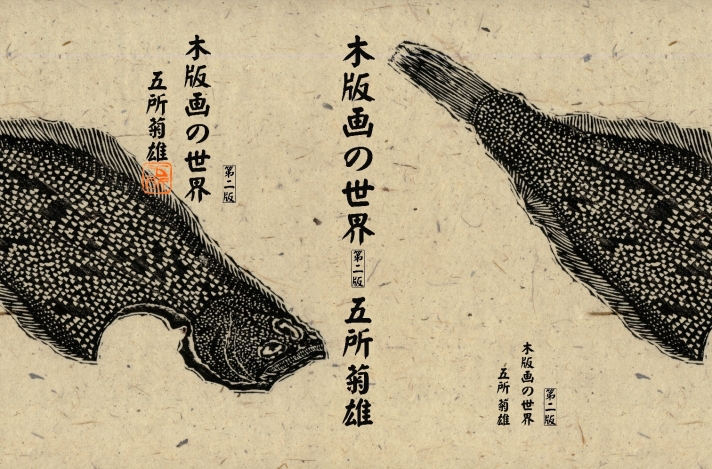 木版画の世界
第二版
五所菊雄
木版画の世界
第二版
五所菊雄
木版画の世界
第二版
五所菊雄